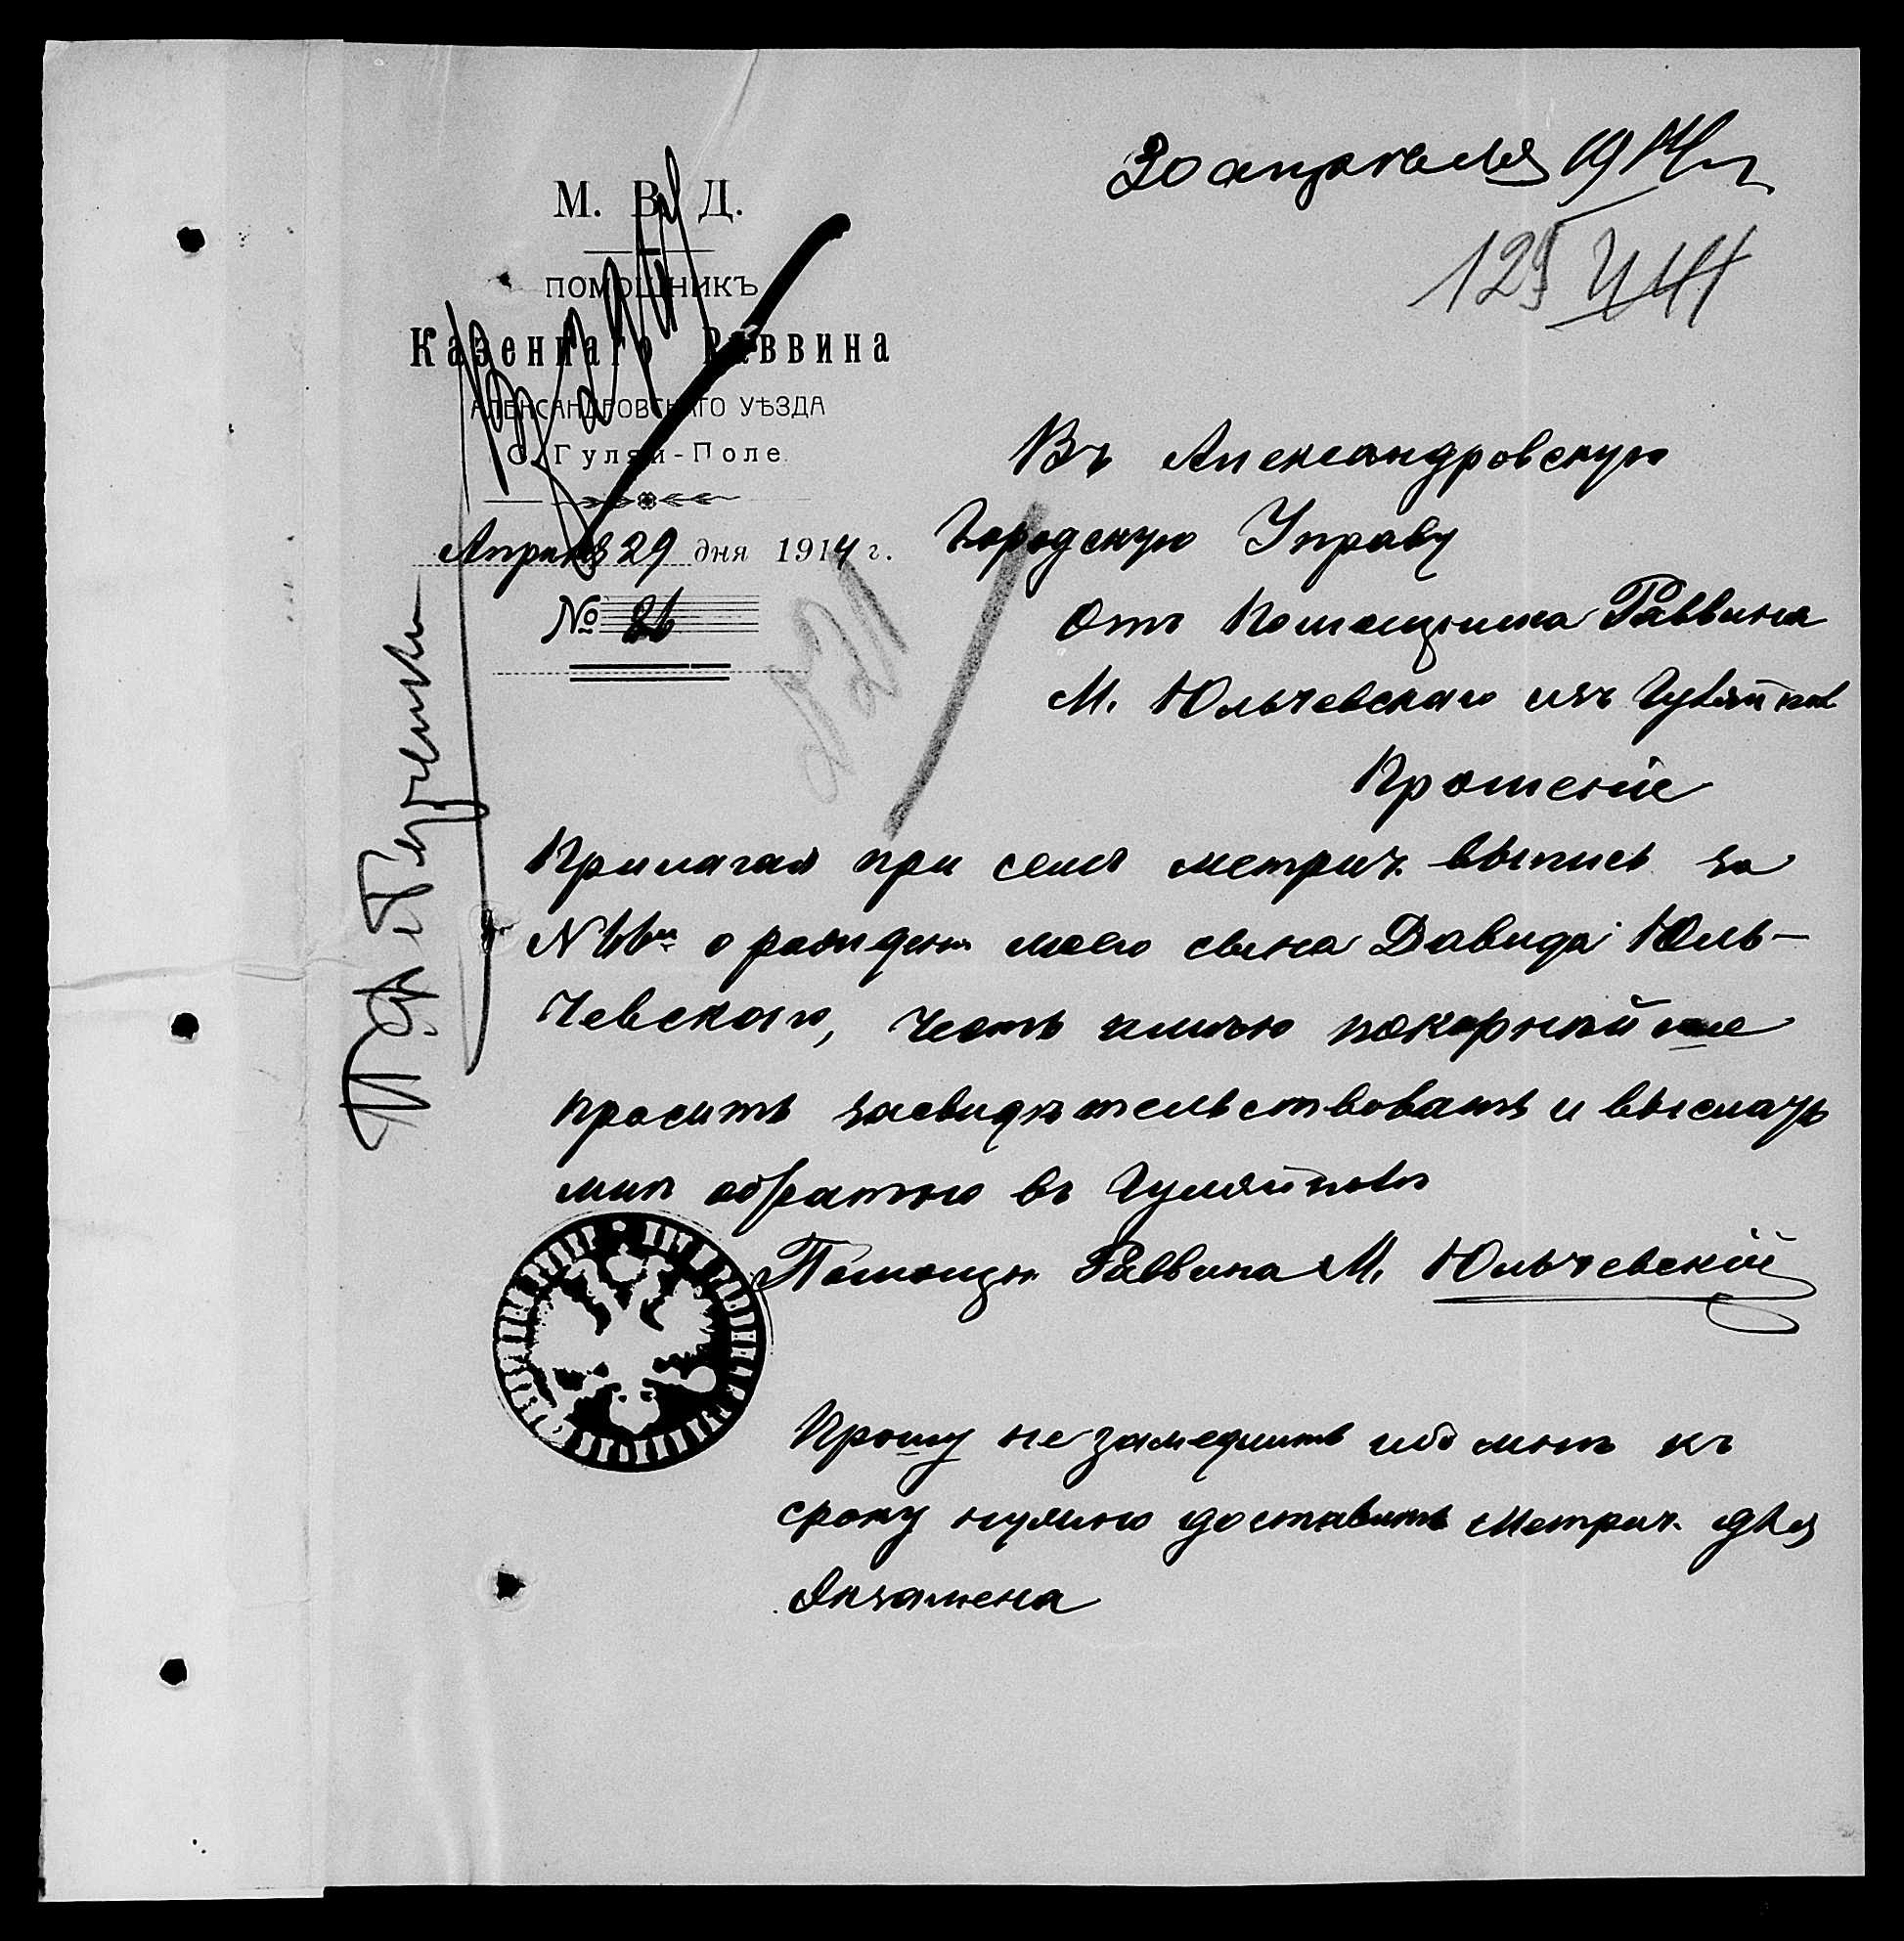 30 апреля 1914 г.
М. В. Д.
ПОМОЩНИКЪ
Казеннаго Раввина
АЛЕКСАНДРОВСКАГО УѢЗДА
С. Гуляй-Поле.
Апреля 29 дня 1914 г.
№ 26
Въ Александровскую
Городскую Управу
Отъ Помощника Раввина
М. Юльчевскаго изъ Гуляйпол
Прошеніе
Прилагая при семъ метрич. выпись за
N о рожденіи моего сына Давида Юль-
чевскаго, честь имѣю покорнѣйше
просить засвидѣтельствовать и выслать
мнѣ обратно въ Гуляйполе
Помощн Раввина М. Юльчевскій
Прошу не замедлить ибо мнѣ къ
сроку нужно доставить Метрич. для
Экзамена